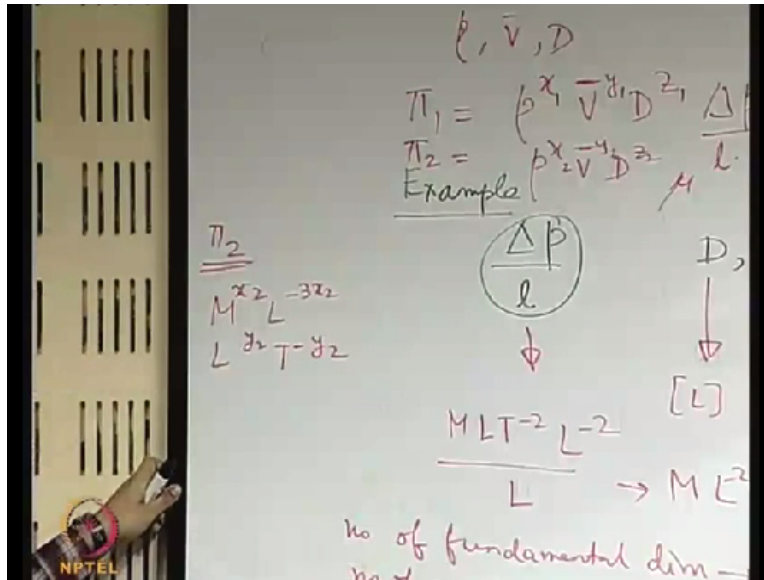 ρ, V̄, D
Π₁ = ρ^x₁ V̄^y₁ D^z₁ Δp/l
Π₂ = ρ^x₂ V̄^y₂ D^z₂ μ
Example
Δp/l D,
Π₂
M^x₂ L^-3x₂
L^y₂ T^-y₂
[L]
MLT⁻² L⁻²/L → M L⁻²
no of fundamental dim –
NPTEL